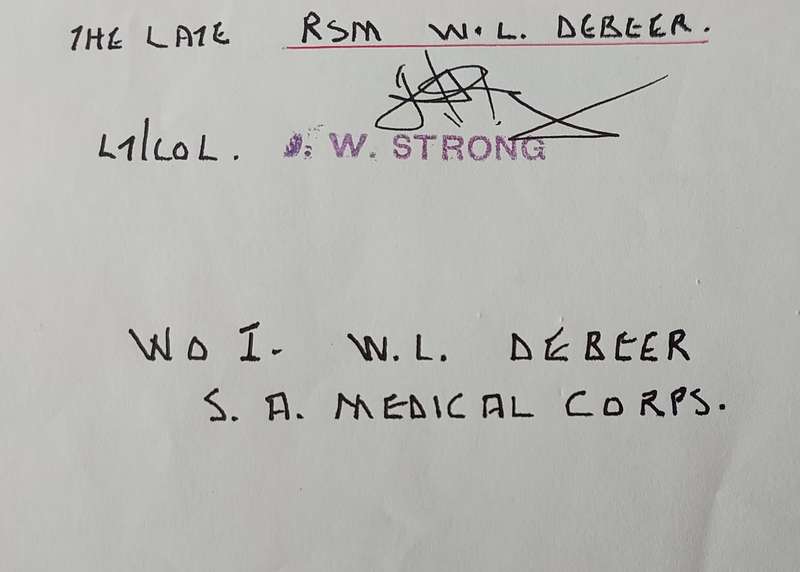 THE LATE RSM W.L. DEBEER.
LT/COL. J. W. STRONG
WO I- W.L. DEBEER
S. A. MEDICAL CORPS.